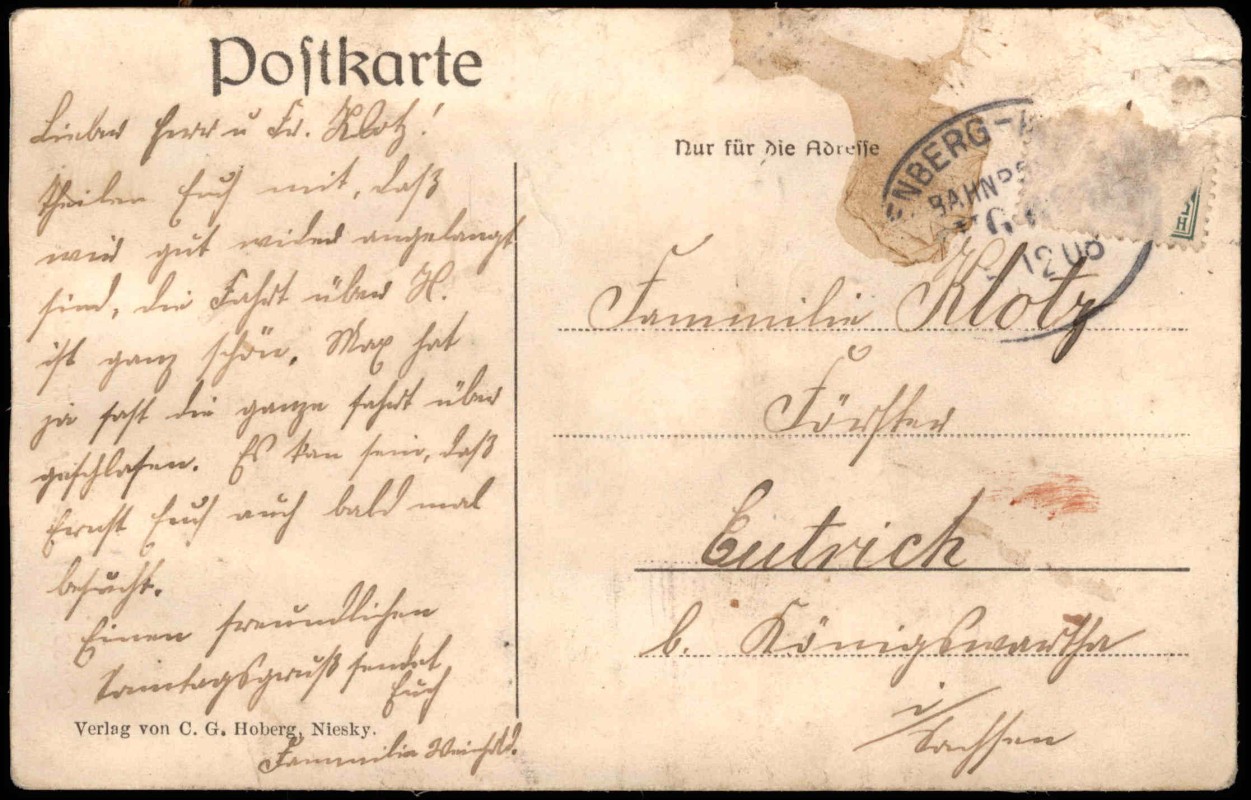 Postkarte
Lieber Herr u Fr. Klotz!
Theilen Euch mit, daß
wir gut wieder angelangt
sind, die Fahrt über H.
ist ganz schön. Max hat
ja fast die ganze fahrt über
geschlafen. Es kan sein, daß
Ernst Euch auch bald mal
besucht.
Einen freundlichen
Sonntagsgruß sendet
Euch
Fammilie
Verlag von C. G. Hoberg, Niesky.
Nur für die Adresse
ENBERG-
BAHNPO
12 06
Fammilie Klotz
Förster
Eutrich
b. Königswartha
i/Sachsen